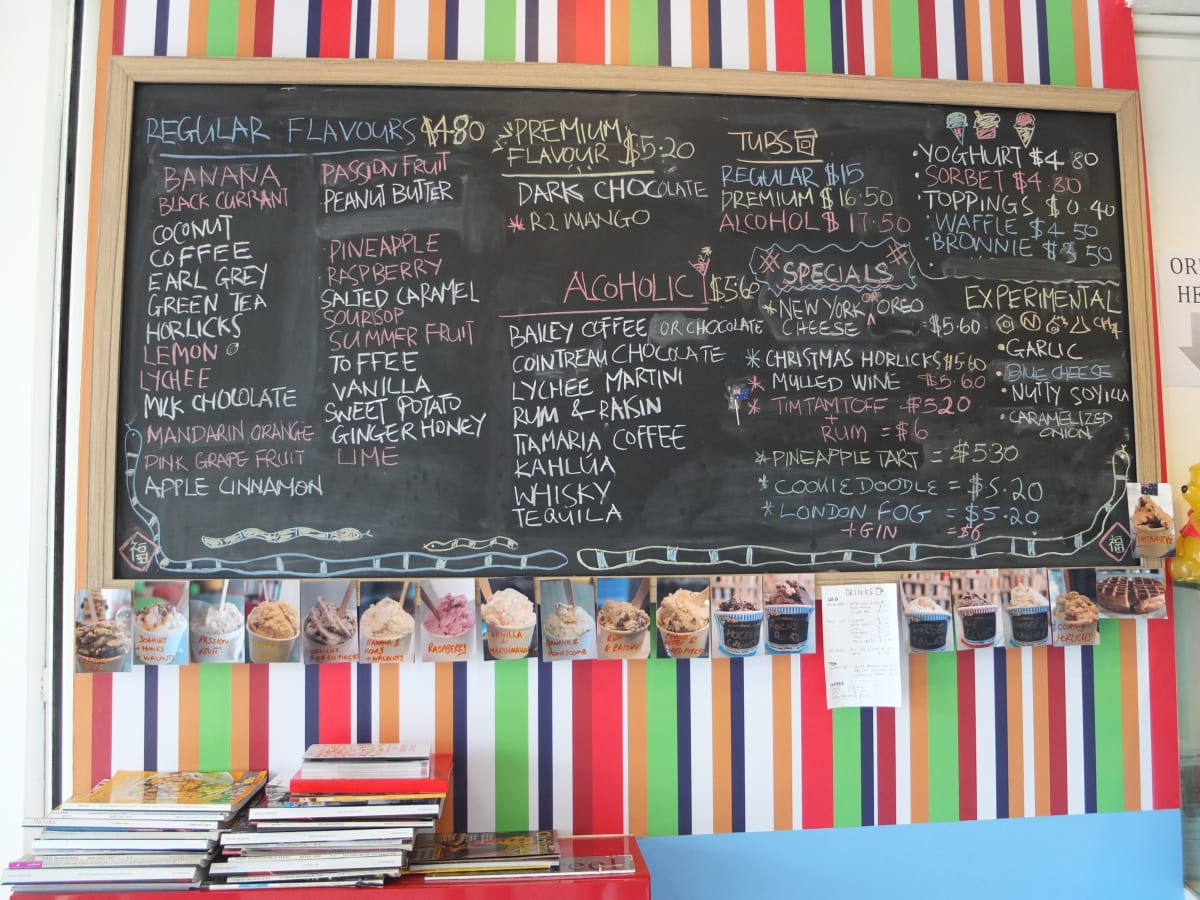 REGULAR FLAVOURS $4.80
BANANA
BLACK CURRANT
COCONUT
COFFEE
EARL GREY
GREEN TEA
HORLICKS
LEMON
LYCHEE
MILK CHOCOLATE
MANDARIN ORANGE
PINK GRAPE FRUIT
APPLE CINNAMON
PASSION FRUIT
PEANUT BUTTER
PINEAPPLE
RASPBERRY
SALTED CARAMEL
SOURSOP
SUMMER FRUIT
TOFFEE
VANILLA
SWEET POTATO
GINGER HONEY
LIME
PREMIUM
FLAVOUR $5.20
DARK CHOCOLATE
* R2 MANGO
ALCOHOLIC $5.60
BAILEY COFFEE OR CHOCOLATE
COINTREAU CHOCOLATE
LYCHEE MARTINI
RUM & RAISIN
TIAMARIA COFFEE
KAHLÚA
WHISKY
TEQUILA
TUBS
REGULAR $15
PREMIUM $16.50
ALCOHOL $17.50
# SPECIALS #
* NEW YORK OR OREO
CHEESE = $5.60
* CHRISTMAS HORLICKS $5.60
* MULLED WINE $5.60
* TIMTAMTOFF $5.20
+
RUM = $6
* PINEAPPLE TART = $5.30
* COOKIEDOODLE = $5.20
* LONDON FOG = $5.20
+ GIN = $6
• YOGHURT $4.80
• SORBET $4.80
TOPPINGS $0.40
• WAFFLE $4.50
• BROWNIE $3.50
EXPERIMENTAL
CH4
• GARLIC
• BLUE CHEESE
• NUTTY SOYILLA
• CARAMELIZED
ONION
福
福
OR
HE
TIMTAMTOFF
YOGHURT
+ HONEY
+ WALNUTS
PASSION
FRUIT
BANANA
HONEY
+ WALNUTS
RASPBERRY
VANILLA
& MARSHMALLOW
RUM
& RAISIN
DRINKS
HORLICKS